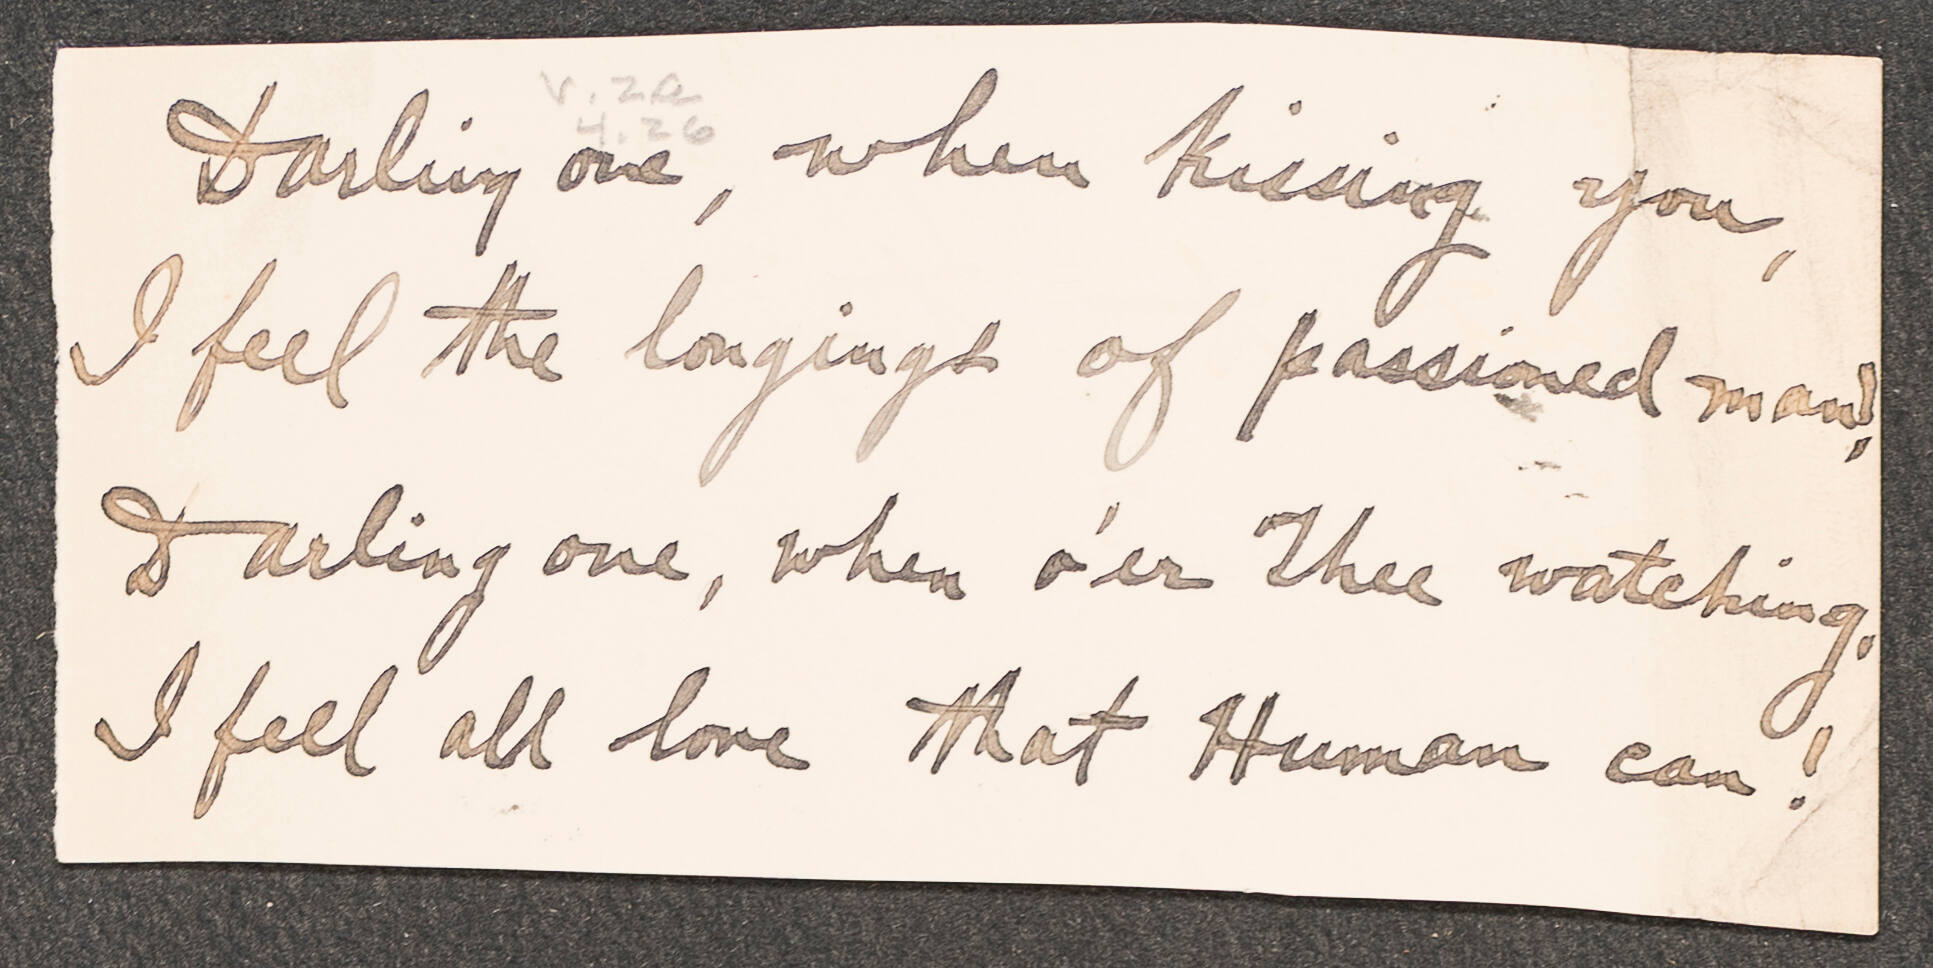 v. 2a
4.26
Darling one, when kissing you,
I feel the longings of passioned man!,
Darling one, when o'er Thee watching,
I feel all love that Human can!